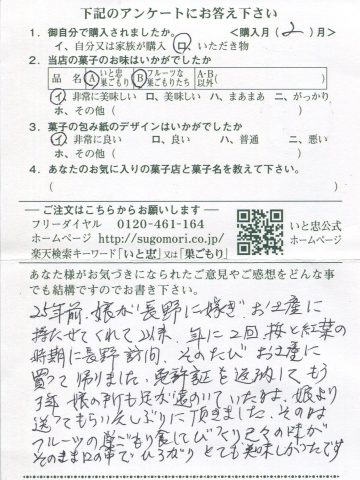 下記のアンケートにお答え下さい
1. 御自分で購入されましたか。 <購入月( 2 )月>
イ、自分又は家族が購入 ロ、いただき物
2. 当店の菓子のお味はいかがでしたか
品 名 A いと忠巣ごもり B フルーツな巣ごもりたち A・B以外
イ、非常に美味しい ロ、美味しい ハ、まあまあ ニ、がっかり
ホ、その他( )
3. 菓子の包み紙のデザインはいかがでしたか
イ、非常に良い ロ、良い ハ、普通 ニ、悪い
ホ、その他( )
4. あなたのお気に入りの菓子店と菓子名を教えて下さい。
( )
ご注文はこちらからお願いします
フリーダイヤル 0120-461-164
ホームページ http://sugomori.co.jp/
楽天検索キーワード「いと忠」又は「巣ごもり」
いと忠公式
ホームページ
あなた様がお気づきになられたご意見やご感想をどんな事
でも結構ですのでお書き下さい。
25年前、娘が長野に嫁ぎ、お土産に
持たせてくれて以来、年に2回、桜と紅葉の
時期に長野訪問、そのたびお土産に
買って帰りました。免許証を返納してもう
3年 娘の所も足が遠のいていたが、娘より
送ってもらい久しぶりに頂きました。その中は
フルーツの巣ごもり食してびっくり 味が
そのまま口の中でひろがり とても美味しかったです